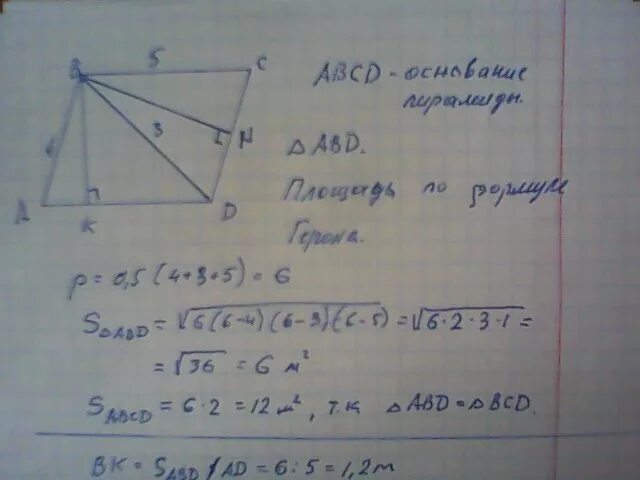 5
B
C
ABCD - основание
пирамиды.
3
N
△ABD.
A
K
D
Площадь по формуле
Герона.
p = 0,5 (4+3+5) = 6
S△ABD = √6(6-4)(6-3)(6-5) = √6·2·3·1 =
= √36 = 6 м²
SABCD = 6·2 = 12 м², т.к △ABD = △BCD.
BK = SABD / AD = 6:5 = 1,2 м